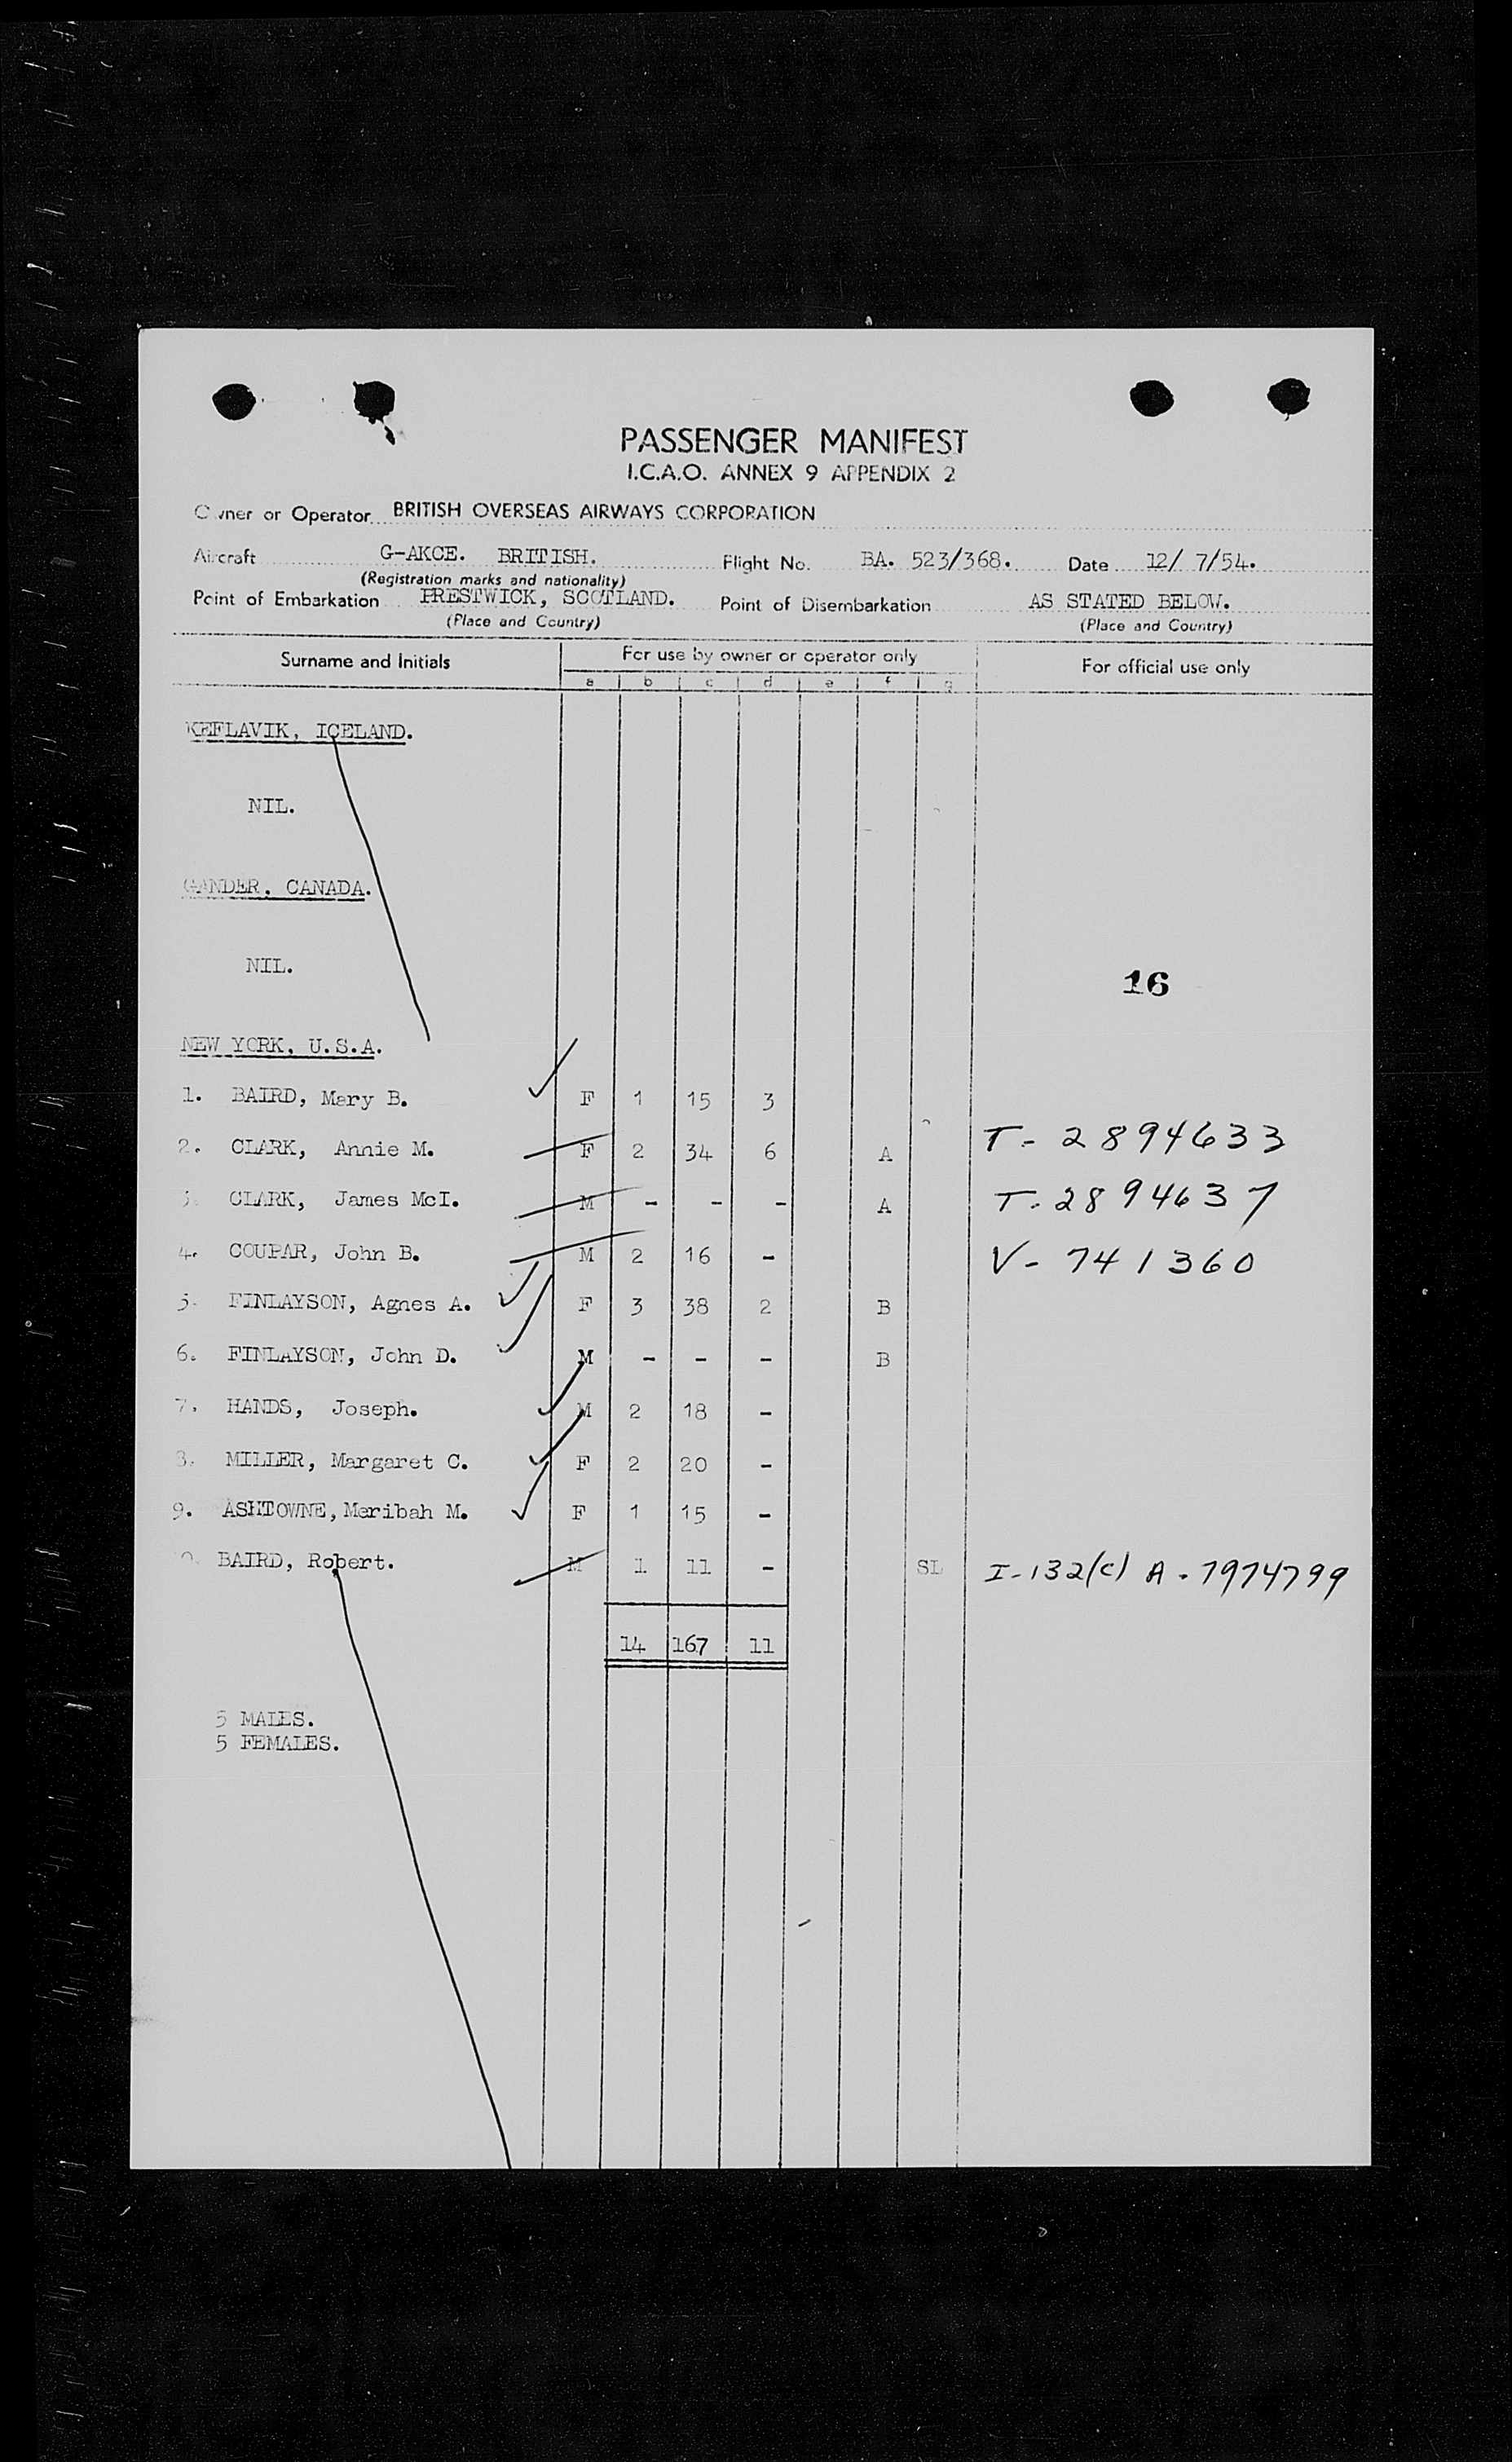 PASSENGER MANIFEST
I.C.A.O. ANNEX 9 APPENDIX 2
Owner or Operator BRITISH OVERSEAS AIRWAYS CORPORATION
Aircraft G-AKCE. BRITISH. Flight No. BA. 523/368. Date 12/ 7/54.
(Registration marks and nationality)
Point of Embarkation PRESTWICK, SCOTLAND. Point of Disembarkation AS STATED BELOW.
(Place and Country) (Place and Country)
Surname and Initials For use by owner or operator only For official use only
a b c d e f g
KEFLAVIK, ICELAND.
NIL.
GANDER, CANADA.
NIL.
16
NEW YORK, U.S.A.
1. BAIRD, Mary B. F 1 15 3
2. CLARK, Annie M. F 2 34 6 A T-2894633
3. CLARK, James McI. M - - - A T-2894637
4. COUPAR, John B. M 2 16 - V-741360
5. FINLAYSON, Agnes A. F 3 38 2 B
6. FINLAYSON, John D. M - - - B
7. HANDS, Joseph. M 2 18 -
8. MILLER, Margaret C. F 2 20 -
9. ASHTOWNE, Meribah M. F 1 15 -
10. BAIRD, Robert. M 1 11 - SL I-132(c) A-7974799
14 167 11
5 MALES.
5 FEMALES.